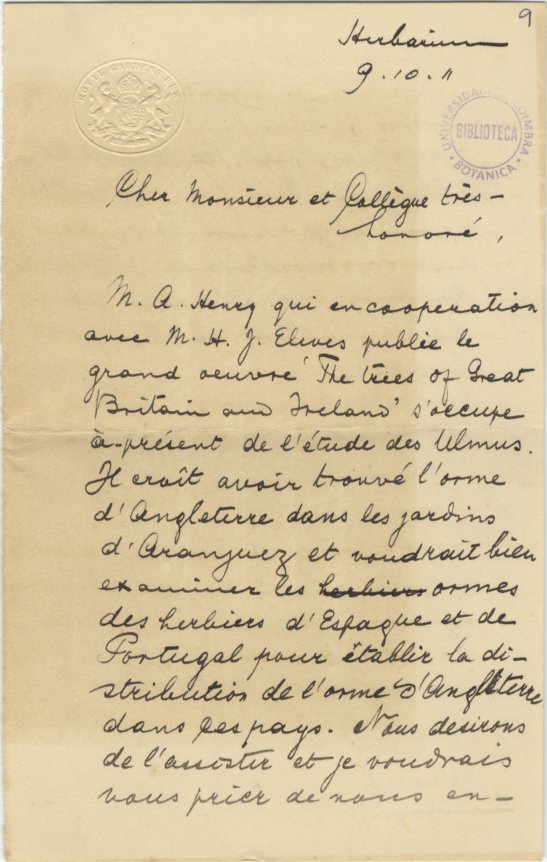 9
Herbarium
9.10.11
ROYAL GARDENS KEW
UNIVERSIDADE DE COIMBRA
BIBLIOTECA
BOTANICA
Cher Monsieur et Collègue très-
honoré,
M. A. Henry qui en cooperation
avec M. H. J. Elwes publie le
grand oeuvre 'The trees of Great
Britain and Ireland' s'occupe
à-présent de l'étude des Ulmus.
Il croît avoir trouvé l'orme
d'Angleterre dans les jardins
d'Aranjuez et voudrait bien
examiner les herbiers ormes
des herbiers d'Espagne et de
Portugal pour établir la di-
stribution de l'orme d'Angleterre
dans ces pays. Nous desirons
de l'assister et je voudrais
vous prier de nous en-